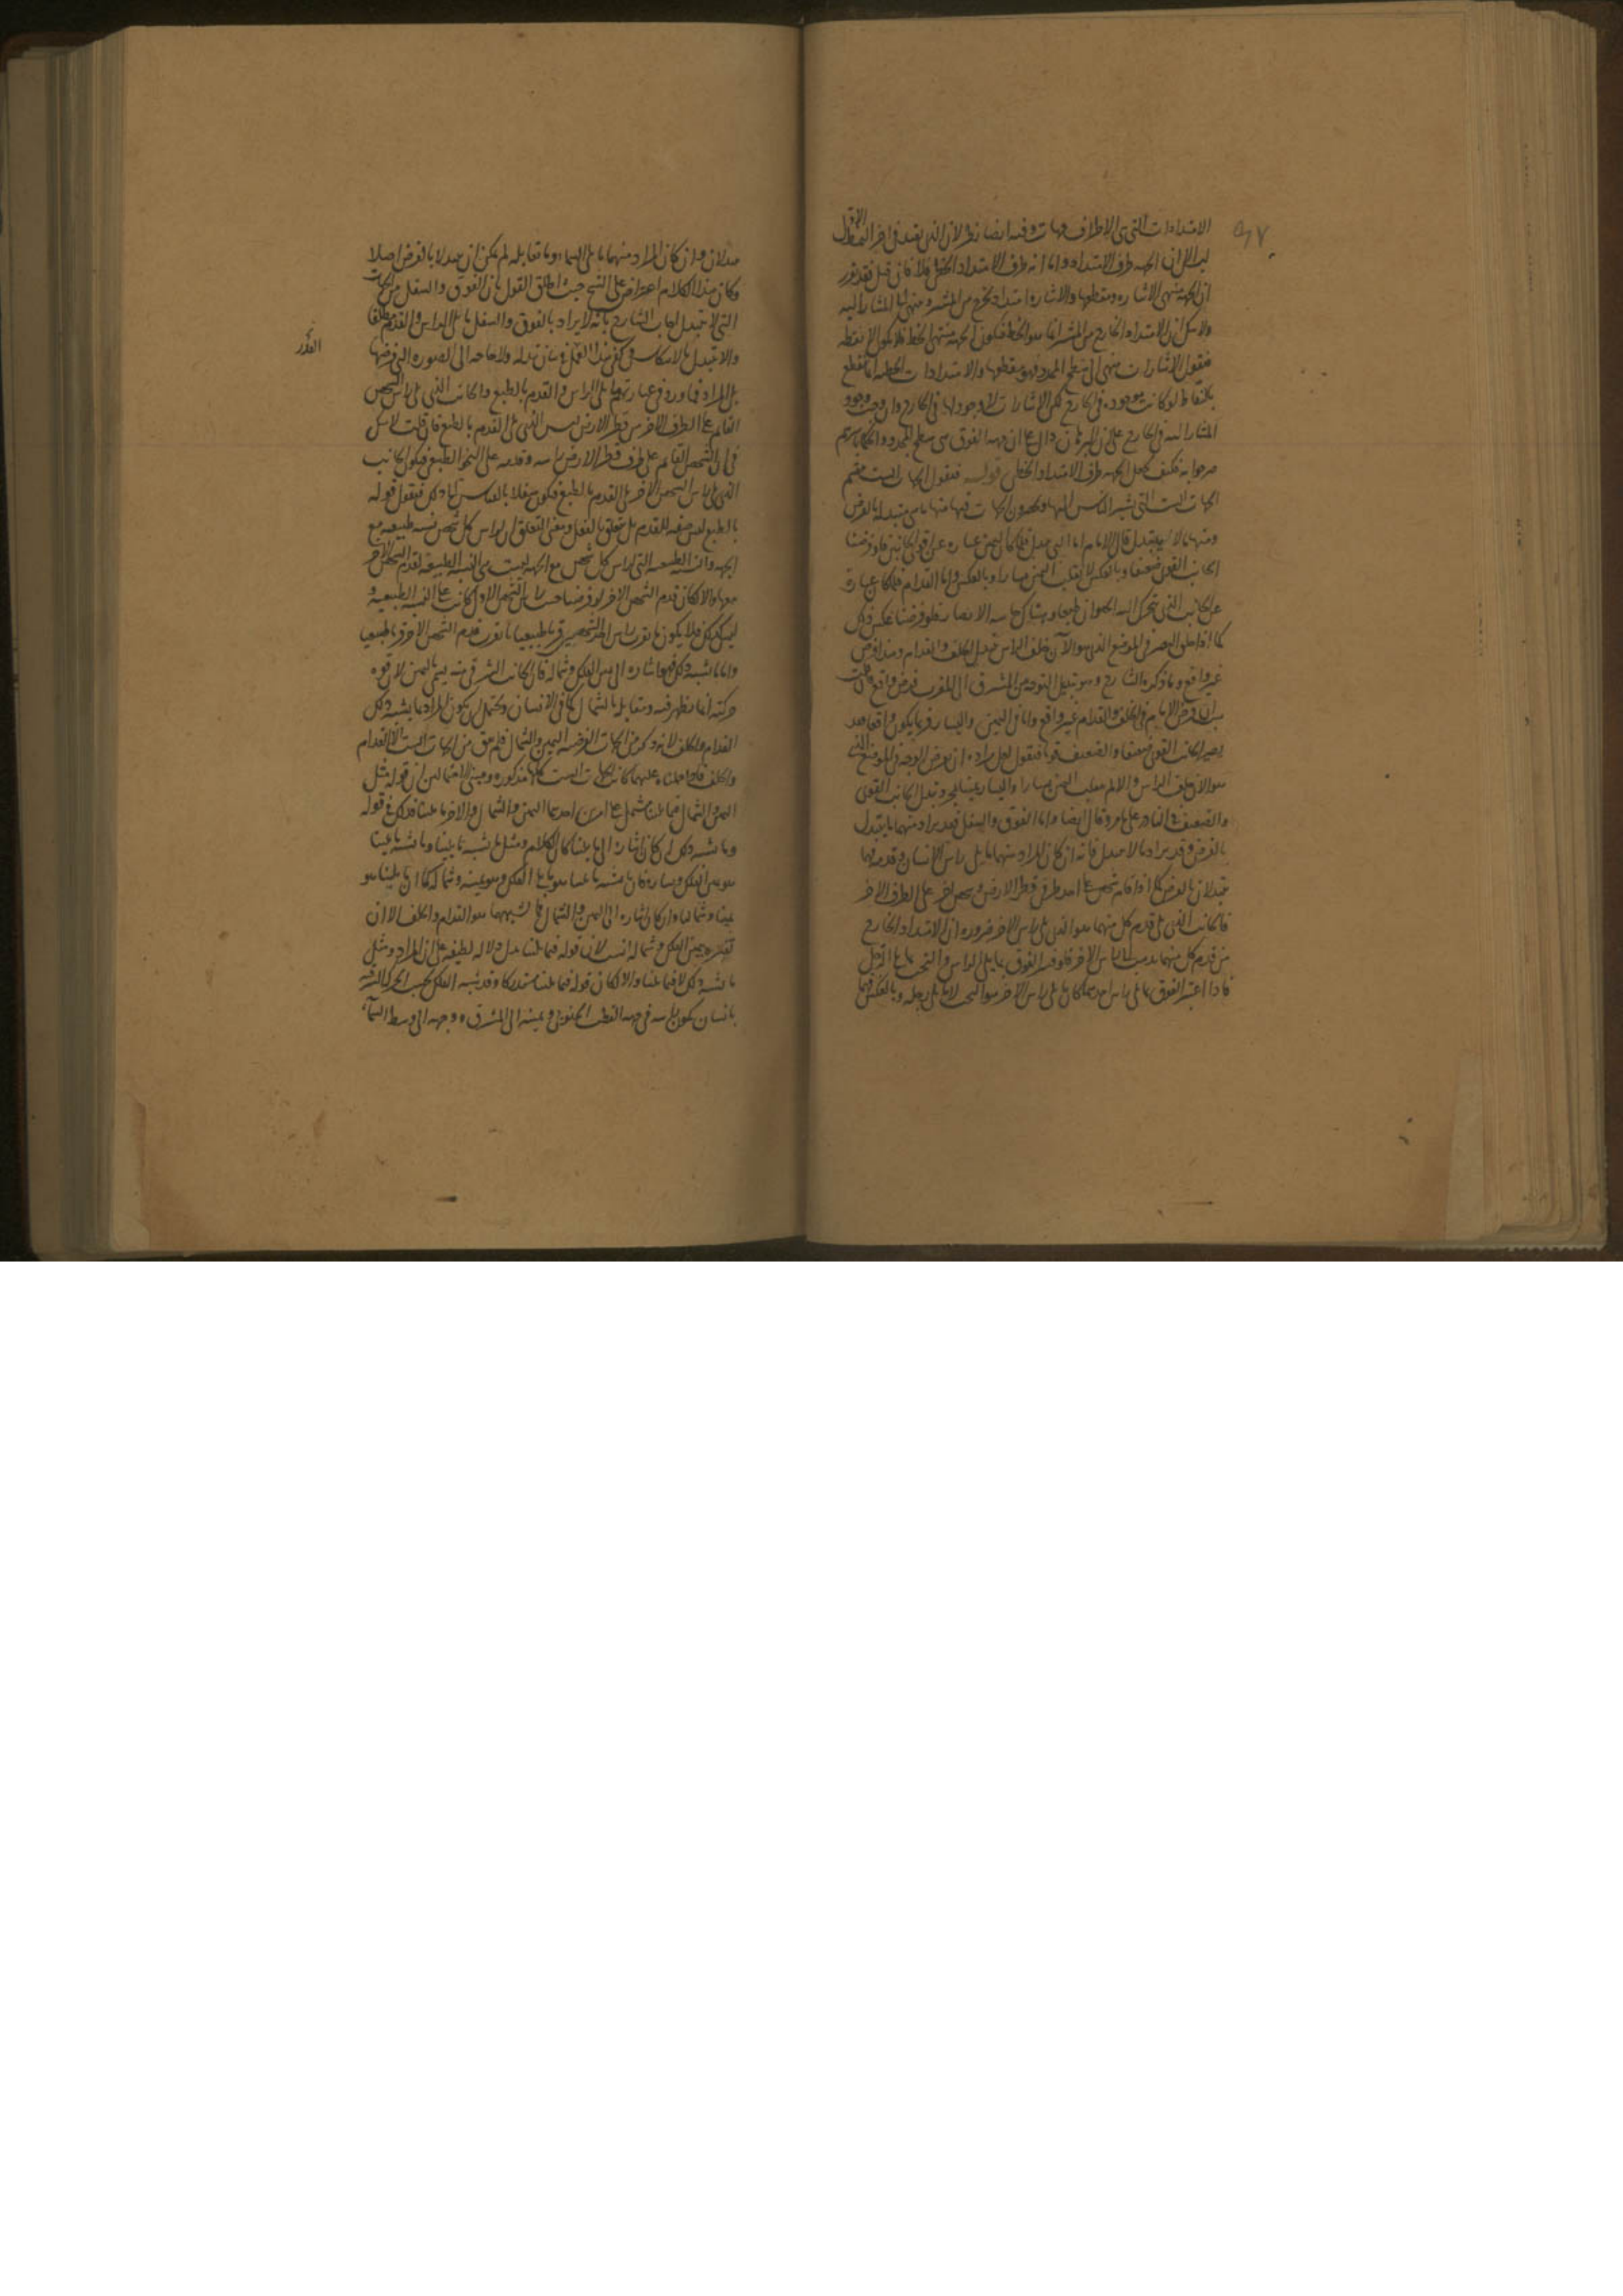 الامتدادات التى هى الاطراف جهات وفيه ايضا نظر لان الذى يفيد فى اخر النمط الاول
ان الجهة طرف الامتداد واما انه طرف الامتداد الخطى فلا فان قيل فقد تقرر
ان الجهة منتهى الاشاره ومقطعها والاشاره امتداد يخرج من المشير وينتهى الى المشار اليه
ولا شك ان الامتداد الخارج من المشير انما هو الخط فيكون الجهة منتهى الخط فلا يكون الا نقطه
فنقول الاشارات منتهى الى سطح المحدد فهو مقطعها والامتدادات الخطية انما تنقطع
بالنقاط لو كانت موجوده فى الخارج لكن الاشارات لا وجود لها فى الخارج وان وجب وجود
المشار اليه فى الخارج على ان البرهان دال على ان جهة الفوق هى سطح المحدد والحكماء باسرهم
صرحوا به فكيف يجعل الجهة طرف الامتداد الخطى قوله فنقول الجهات الست
الجهات الست التى يشير الناس اليها ويحصرون الجهات فيها منها ما هى متبدلة بالفرض
ومنها ما لا يتبدل قال الامام اما التى يتبدل فلما كان اليمين عباره عن اقوى الجانبين فلو فرضنا
الجانب القوى ضعيفا وبالعكس لانقلب اليمين يسارا وبالعكس واما القدام فلما كان عبارة
عن الجانب الذى يتحرك اليه الحيوان طبعا وهناك حاسه الابصار فلو فرضنا عكس ذلك
كما اذا خلق البصر فى الموضع الذى هو الآن خلف الراس تبدل الخلف والقدام وهذا فرض
غير واقع وما ذكره الشارح وهو تبديل التوجه من المشرق الى المغرب فرض واقع فان قلت
ان فرض الامام فى الخلف والقدام غير واقع واما فى اليمين واليسار فربما يكون واقعا فقد
يصير الجانب القوى ضعيفا والضعيف قويا فنقول لعل مراده ان يفرض الوجه فى الموضع الذى
هو الآن خلف الراس والا لم ينقلب اليمين يسارا واليسار يمينا بمجرد تبدل الجانب القوى
والضعيف فى النادر على ما مر وقال ايضا واما الفوق والسفل فقد يراد منهما ما يتبدل
بالفرض وقد يراد ما لا يتبدل فانه ان كان المراد منهما ما يلى راس الانسان وقدمه فهما
يتبدلان بالفرض كما اذا قام شخص على احد طرفى قطر الارض وشخص اخر على الطرف الاخر
فالجانب الذى يلى قدم كل منهما هو الذى يلى راس الاخر ضروره ان الامتداد الخارج
من قدم كل منهما يذهب الى راس الاخر فلو فسر الفوق بما يلى الراس والتحت بما يلى الرجل
فاذا اعتبر الفوق بما يلى راس احدهما كان ما يلى راس الاخر هو التحت لانه ما يلى رجله وبالعكس فهما
متبدلان وان كان المراد منهما ما يلى السماء وما تقابله لم يمكن ان يتبدلا بالفرض اصلا
وكان هذا الكلام اعتراض على الشيخ حيث اطلق القول بان الفوق والسفل من الجهات
التى لا تتبدل اجاب الشارح بانه لا يراد بالفوق والسفل ما يلى الراس والقدم مطلقا
والا لتبدل بالانتكاس وكفى بهذا القدر فى بيان تبدله ولا حاجه الى الصوره التى فرضها
بل المراد فما ورد فى عبارتهم ما يلى الراس والقدم بالطبع والجانب الذى يلى راس الشخص
القائم على الطرف الاخر من قطر الارض ليس الذى يلى القدم بالطبع فان قلت لا شك
فى ان الشخص القائم على طرف قطر الارض راسه وقدمه على النحو الطبيعى فيكون الجانب
الذى يلى راس الشخص الاخر يلى القدم بالطبع فيكون سفلا بالقياس الى ذلك فنقول قوله
بالطبع ليس صفه للقدم بل متعلق بالفعل ومعنى التعلق ان لراس كل شخص نسبه طبيعيه مع
الجهه والنسبه الطبيعيه التى لراس كل شخص مع الجهه ليست هى النسبه الطبيعيه لقدم الشخص الاخر
معها والا لكان قدم الشخص الاخر لو فرضنا حيث راس الشخص الاول كانت على النسبه الطبيعيه و
ليس كذلك فلا يكون ما يقرب راس احد الشخصين قربا طبيعيا ما يقرب قدم الشخص الاخر قربا طبيعيا
واما ما يشبه ذلك فهو اشاره الى يمين الفلك وشماله فان الجانب الشرقى منه يسمى باليمين لان قوه
حركته انما يظهر فيه ومقابله بالشمال كما فى الانسان ويحتمل ان يكون المراد بما يشبه ذلك
القدام والخلف لانه ذكر من الجهات الفرضيه اليمين والشمال فلم يبق من الجهات الست الا القدام
والخلف فاذا حملناه عليهما كانت الجهات الست كلها مذكوره ومبنى الاحتمالين ان قوله مثل
اليمين والشمال فيما يلينا مشتمل على امرين احدهما اليمين والشمال والاخر ما يلينا فذلك فى قوله
وما يشبه ذلك ان كان اشاره الى ما يلينا كان الكلام ومثل ما يشبه ما يلينا وما يشبه ما يلينا
هو يمين الفلك ويساره فان ما يشبه ما يلينا هو ما يلى الفلك وهو يمينه وشماله كما ان ما يلينا هو
يميننا وشمالنا وان كان اشاره الى اليمين والشمال فما يشبههما هو القدام والخلف الا ان
تفسيره بيمين الفلك وشماله انسب لان قوله فيما يلينا يدل دلاله لطيفه على ان المراد ومثل
ما يشبه ذلك لا فيما يلينا والا لكان قوله فيما يلينا مستدركا وقد شبه الفلك بحسب الحركه الشرقيه
بانسان يكون راسه فى جهه القطب الجنوبى ويمينه الى المشرق ووجهه الى وسط السماء